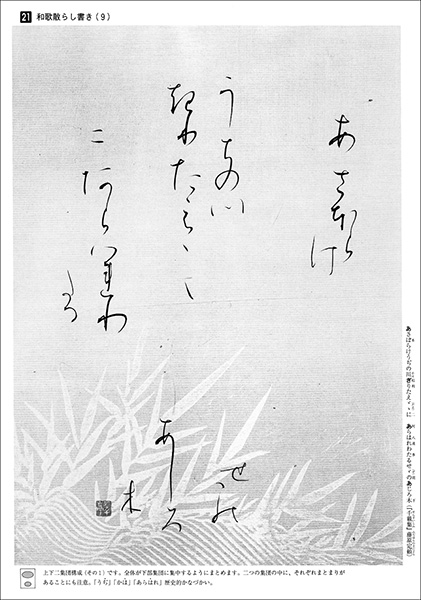 21 和歌散らし書き（9）
あさほらけ
うちの川
たえ〱
二あらハれわ
たる
あしろ
木
あさぼらけうぢの川ぎりたえ〲に　あらはれわたるせゞのあじろ木（『千載集』藤原定頼）
上下二集団構成（その1）です。全体が下部集団に集中するようにまとめます。二つの集団の中に、それぞれまとまりが
あることにも注意。「うぢ」「かは」「あらはれ」歴史的かなづかい。